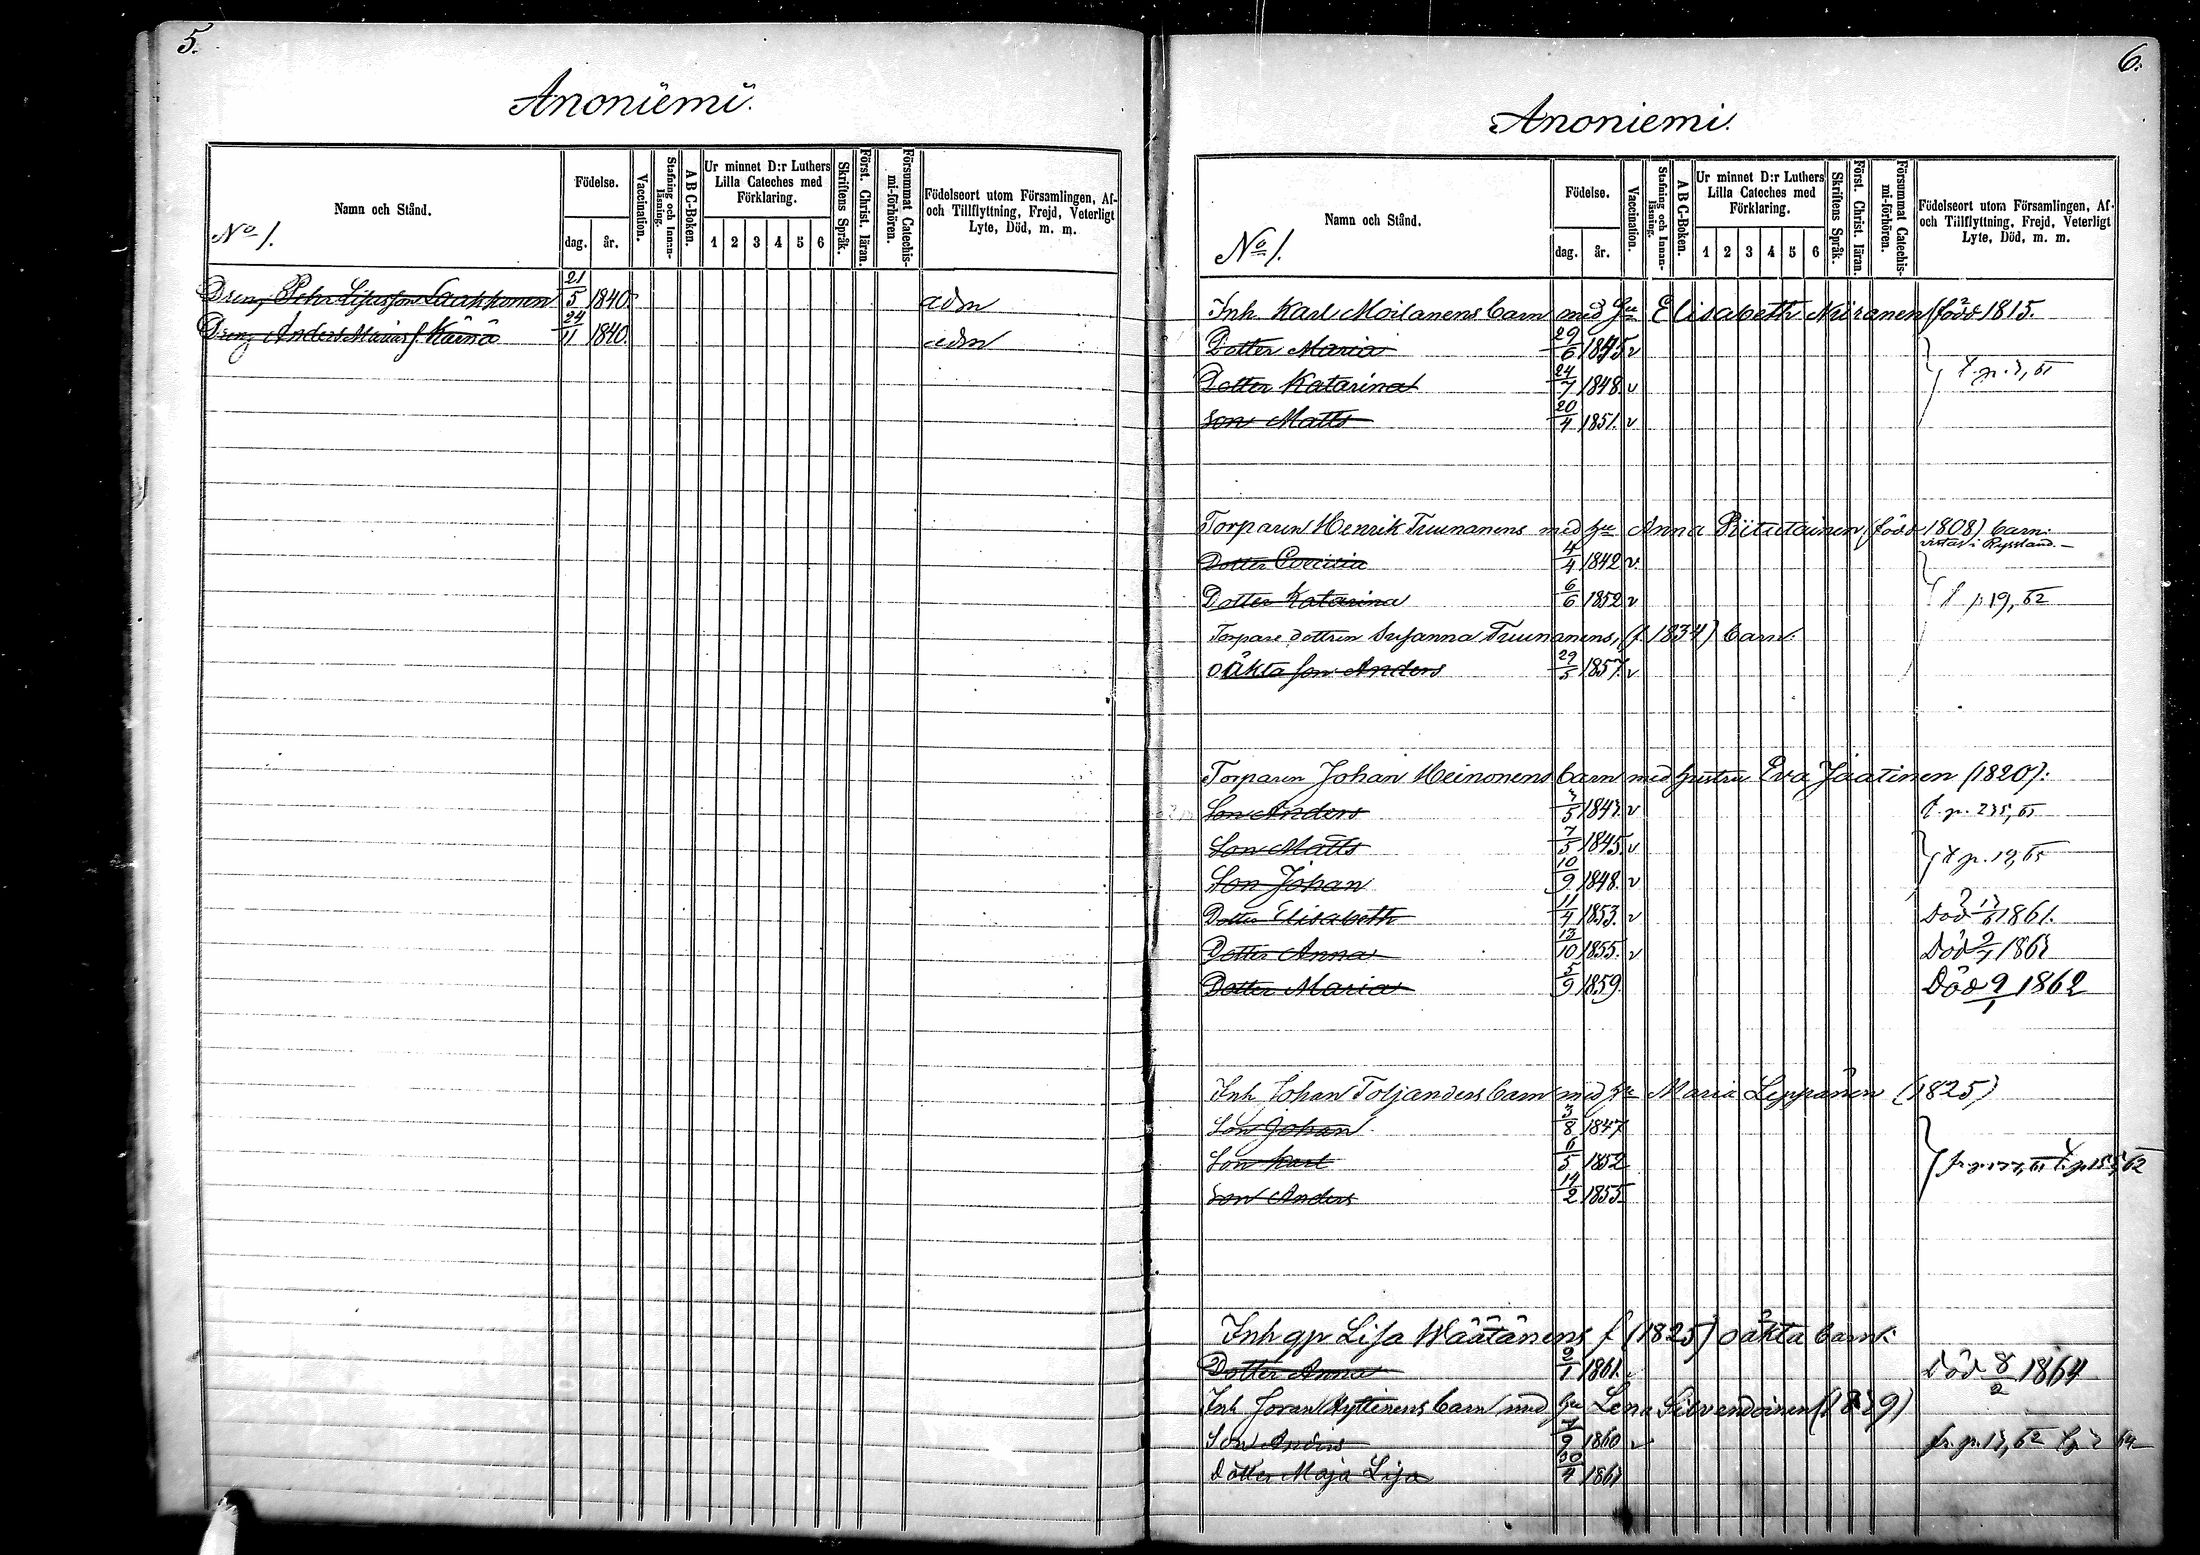 5.
Anoniemi.
Namn och Stånd.
No 1.
Födelse.
dag. år.
Vaccination.
Stafning och Innanläsning.
A B C-Boken.
Ur minnet D:r Luthers
Lilla Cateches med
Förklaring.
1 2 3 4 5 6
Skriftens Språk.
Först. Christ. läran.
Försummat Catechismi-förhören.
Födelseort utom Församlingen, Af-
och Tillflyttning, Frejd, Veterligt
Lyte, Död, m. m.
Dreng Pehr Lisasson Laakkonen 21/5 1840. adm
Dreng Anders Marias s. Käinä 24/11 1840. adm
6.
Anoniemi.
Namn och Stånd.
No 1.
Födelse.
dag. år.
Vaccination.
Stafning och Innanläsning.
A B C-Boken.
Ur minnet D:r Luthers
Lilla Cateches med
Förklaring.
1 2 3 4 5 6
Skriftens Språk.
Först. Christ. läran.
Försummat Catechismi-förhören.
Födelseort utom Församlingen, Af-
och Tillflyttning, Frejd, Veterligt
Lyte, Död, m. m.
Inh. Karl Moilanens barn med hu Elisabeth Niiranen född 1815.
Dotter Maria 29/6 1845 v
Dotter Katarina 24/7 1848 v
Son Matts 20/4 1851. v
Torparen Henrik Truunanens med hu Anna Piitulainen (född 1808) barn:
vistas i Ryssland.
Dotter 4/4 1842 v.
Dotter Katarina 6/6 1852 v f p 19, 62
Torpare dottren Susanna Truunanens, (f. 1834) barn:
oäkta son Anders 29/5 1857. v
Torparen Johan Heinonens barn med hustru Eva Jaatinen (1820).
Son Anders 3/5 1843. v f. p. 235, 65
Son Matts 7/5 1845. v
Son Johan 10/9 1848. v f p. 19, 65
Dotter Elisabeth 11/4 1853. v Död 1861.
Dotter Anna 13/10 1855. v Död
Dotter Maria 5/9 1859 Död 9/1 1862
Inh. Johan Toljanders barn med hu Maria Leppänen (1825)
Son Johan 3/8 1847
Son Karl 6/5 1852
Son Anders 14/2 1855
Inh gp Lisa Wäätänens f (1825) oäkta barn:
Dotter Anna 9/1 1861. Död 8/2 1864
Inh Joran Hyttinens barn med hu Lena Silvendoinen (1839)
Son Anders 7/9 1860 v
Dotter Maja Lisa 30/4 1863